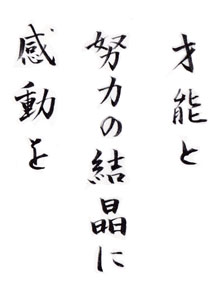 才能と
努力の結晶に
感動を